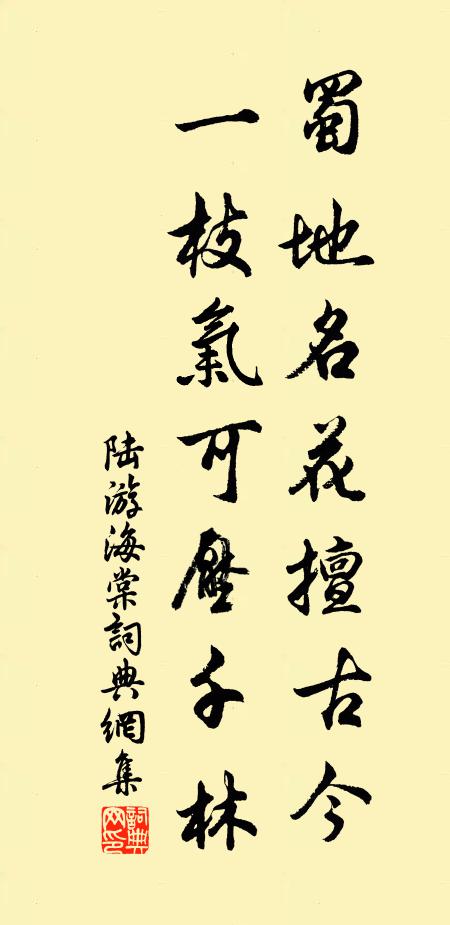 蜀地名花擅古今
一枝氣可壓千林
陆游海棠詞典網集
詞典网印